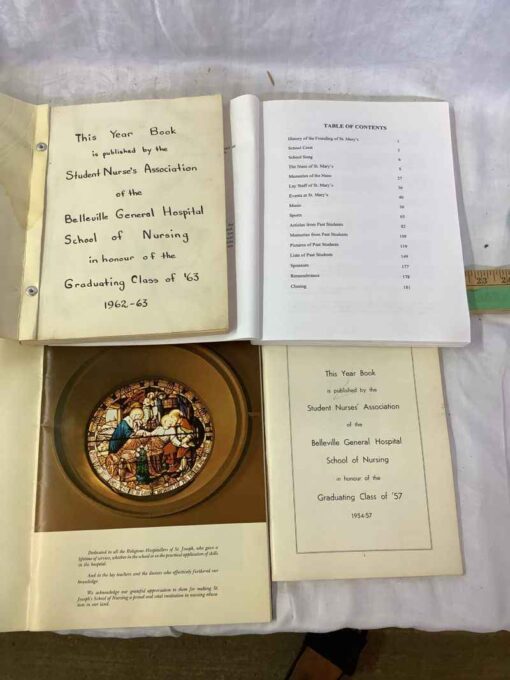 This Year Book
is published by the
Student Nurse's Association
of the
Belleville General Hospital
School of Nursing
in honour of the
Graduating Class of '63
1962-63
TABLE OF CONTENTS
History of the Founding of St. Mary's 1
School Crest
School Song 6
The Nuns of St. Mary's 8
Memories of the Nuns 27
Lay Staff of St. Mary's 36
Events at St. Mary's
Music
Sports
Articles from Past Students 82
Memories from Past Students
Pictures of Past Students
Lists of Past Students 149
Sponsors 177
Remembrance 178
Closing 181
23
24
This Year Book
is published by the
Student Nurses' Association
of the
Belleville General Hospital
School of Nursing
in honour of the
Graduating Class of '57
1954-57
Dedicated to all the Religious Hospitallers of St. Joseph, who gave a
lifetime of service, whether in the school or as the practical application of skills
in the hospital.
And to the lay teachers and the doctors who effectively furthered our
knowledge.
We acknowledge our grateful appreciation to them for making St.
Joseph's School of Nursing a proud and vital institution in nursing educa-
tion in our land.